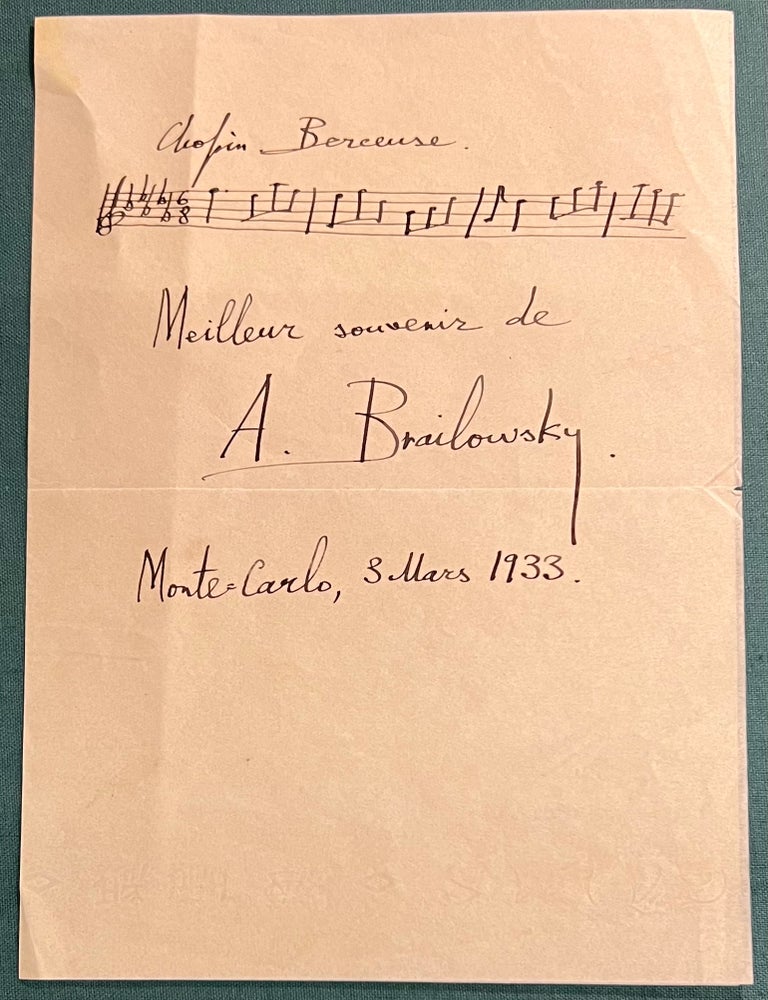 Chopin Berceuse.
6
8
Meilleur souvenir de
A. Brailowsky.
Monte-Carlo, 3 Mars 1933.